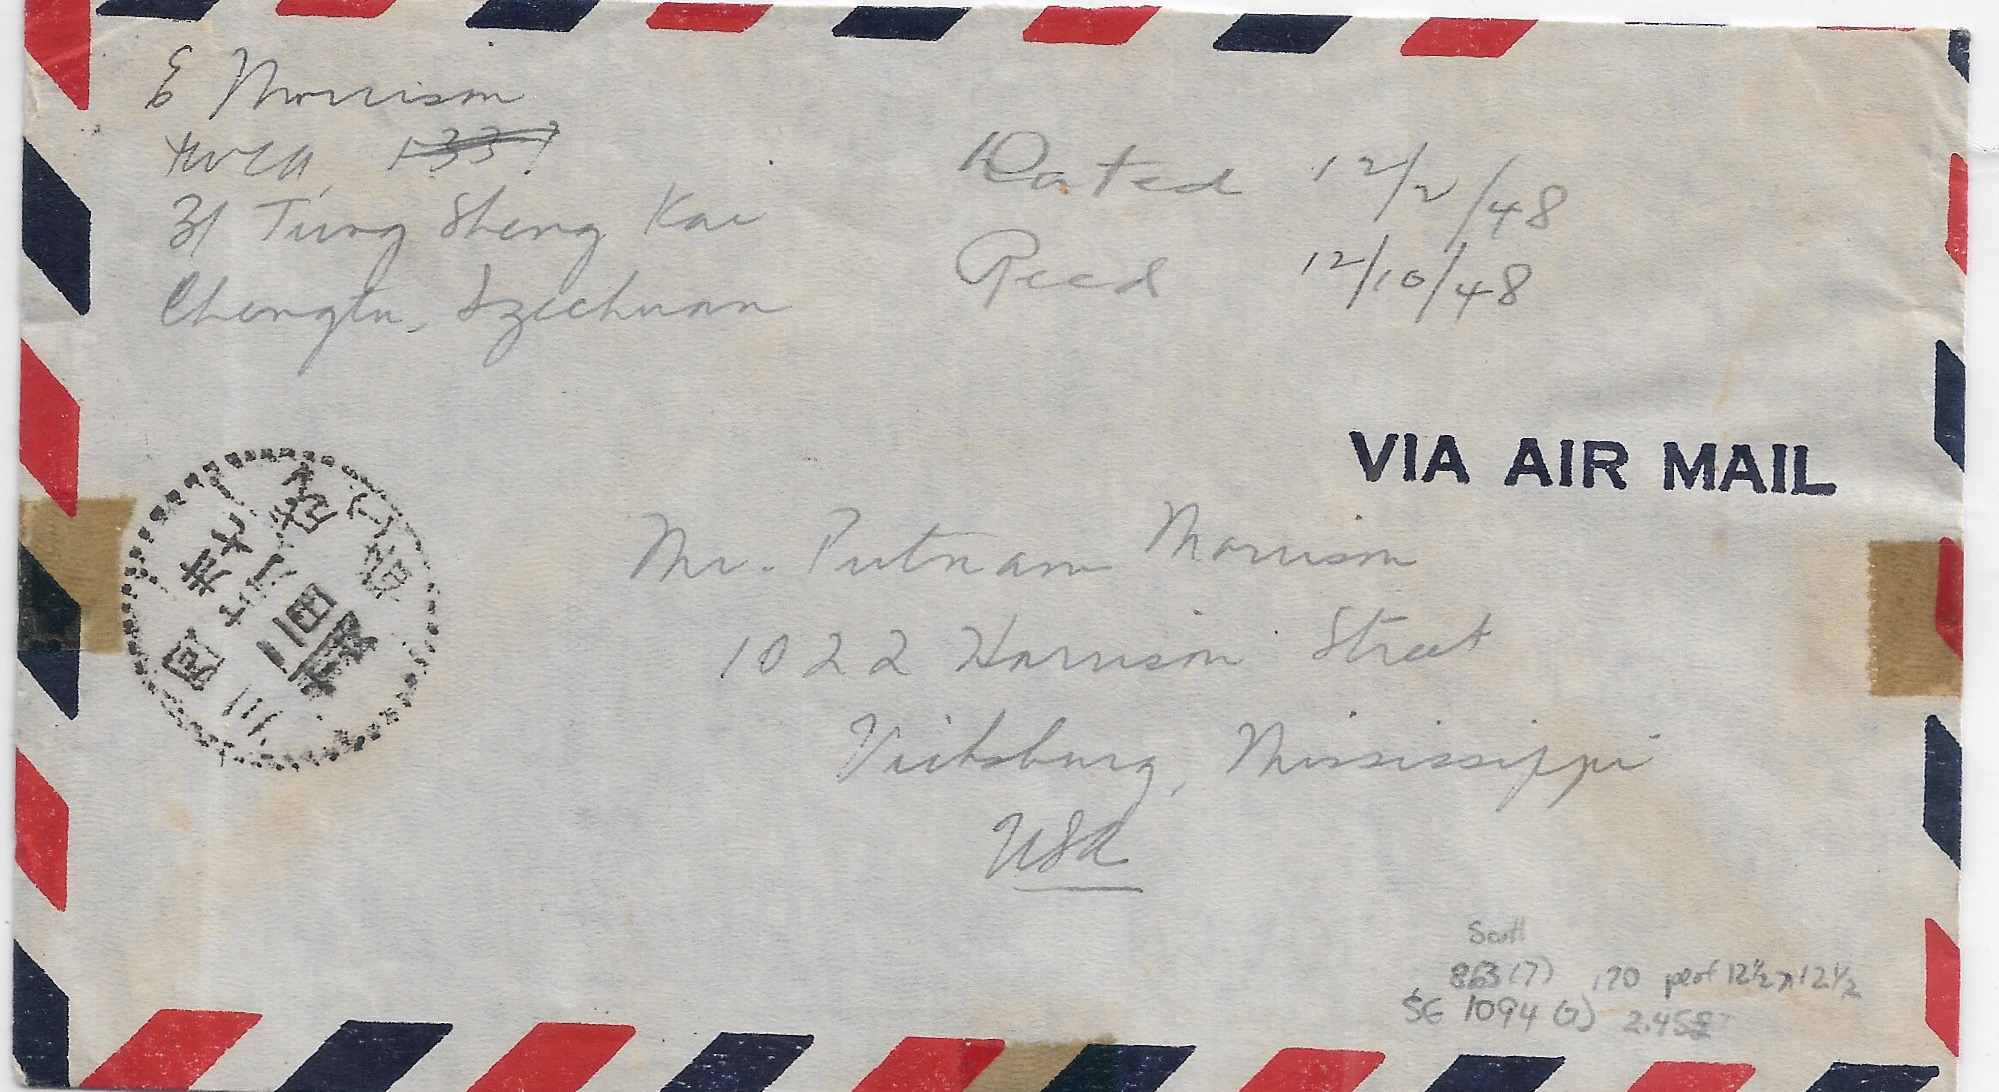 E Morrison
YWCA 1337
31 Tung Sheng Kai
Chengtu, Szechuan
Dated 12/2/48
Recd 12/10/48
VIA AIR MAIL
Mr. Putnam Morrison
1022 Harrison Street
Vicksburg, Mississippi
USA
Scott
863 (7) .170 perf 12½ x 12½
SG 1094 (7) 2.45
四川
成都